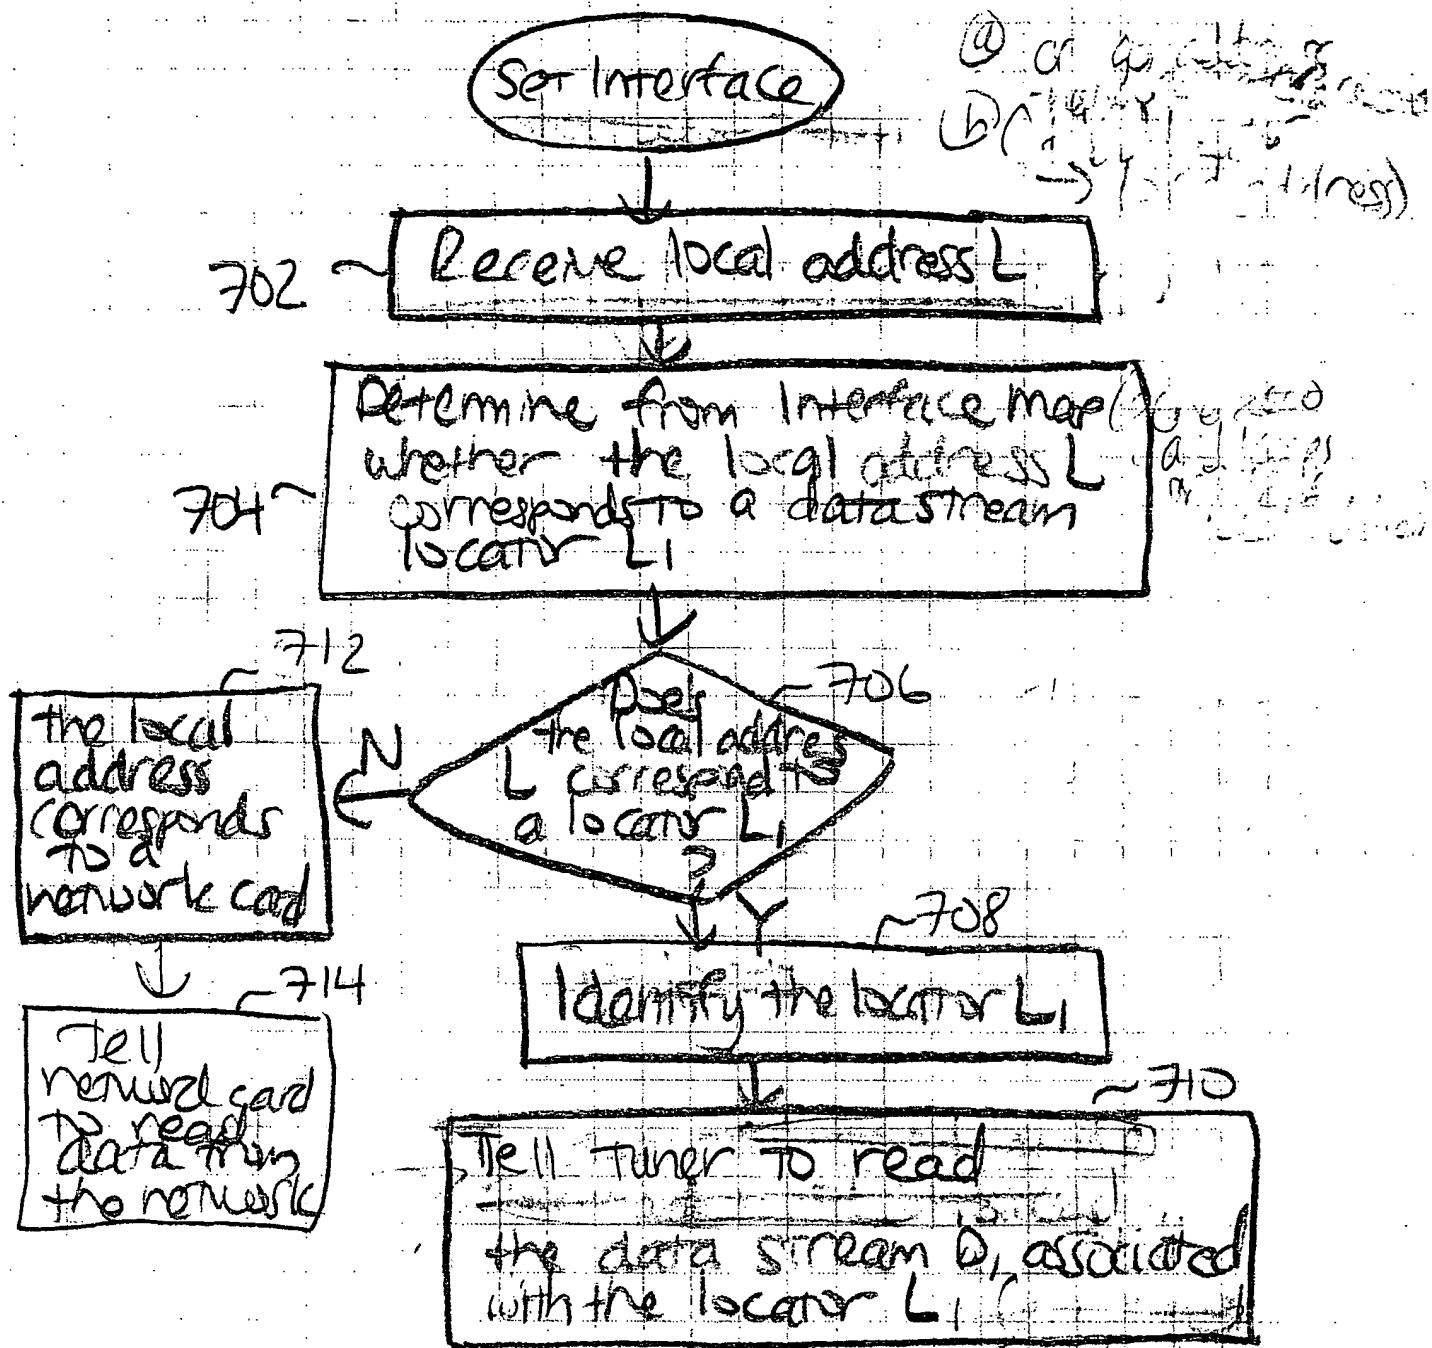 Set Interface
702
Receive local address L
704
Determine from Interface Map
whether the local address L
corresponds to a data stream
locator L1
706
Does
the local addres
L correspond to
a locator L1
?
N
Y
712
the local
address
corresponds
to a
network card
714
Tell
network card
to read
data from
the network
708
Identify the locator L1
710
Tell Tuner to read
the data stream D1 associated
with the locator L1